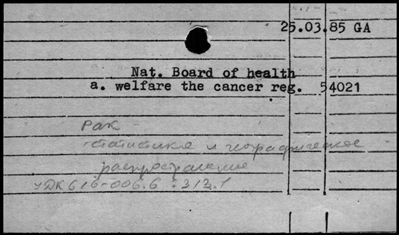 25.03.85 GA
Nat. Board of health
a. welfare the cancer reg. 54021
Рак
- статистика и географическое
распространение
УДК 616-006.6 : 312.1